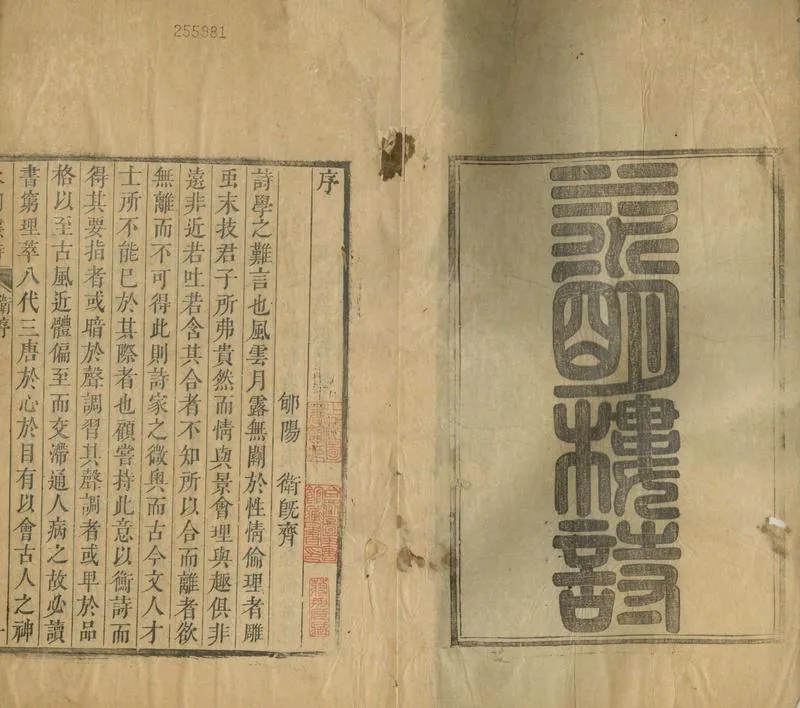 255981
水明樓詩
序
郇陽 衛旣齊
詩學之難言也風雲月露無關於性情倫理者雕
䖝末技君子所弗貴然而情與景會理與趣俱非
遠非近若吐若含其合者不知所以合而離者欲
無離而不可得此則詩家之微奧而古今文人才
士所不能已於其際者也顧嘗持此意以衡詩而
得其要指者或暗於聲調習其聲調者或卑於品
格以至古風近體偏至而交滯通人病之故必讀
書窮理萃八代三唐於心於目有以會古人之神
衛序